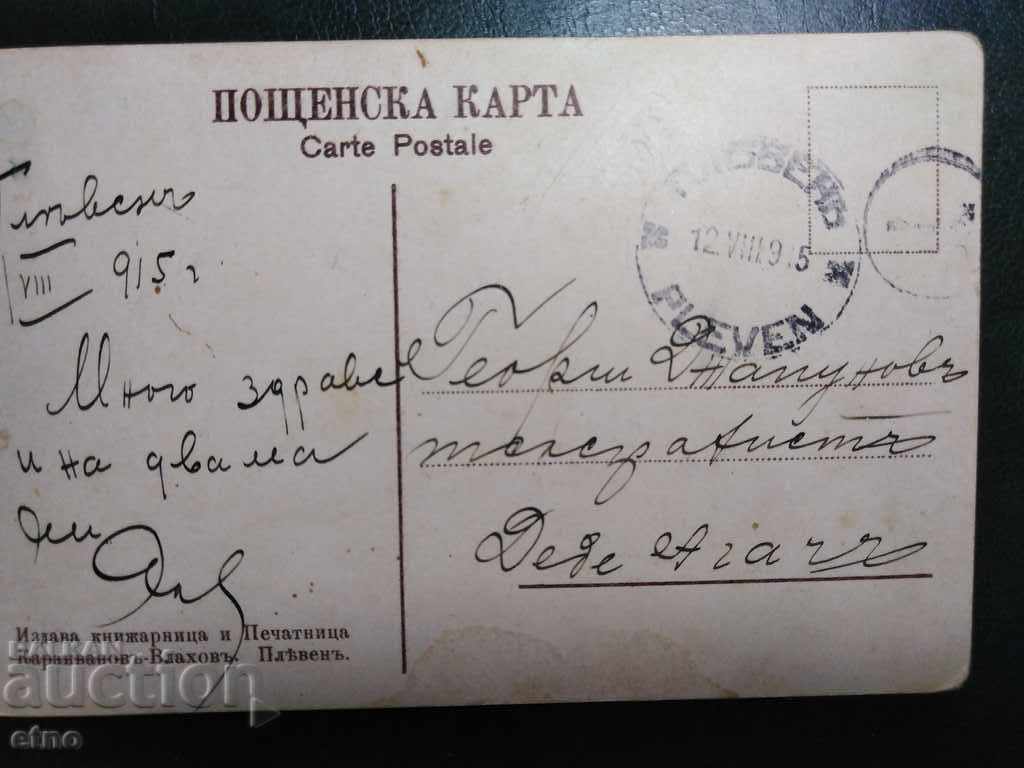 ПОЩЕНСКА КАРТА
Carte Postale
Плѣвенъ
VIII 915 г
Много здраве
и на двама
ПЛѢВЕНЪ
12.VIII.915
PLEVEN
Георги Джапуновъ
телеграфистъ
Деде Агачъ
Издава книжарница и Печатница
Караивановъ-Влаховъ. Плѣвенъ.
BALKAN
auction
etno